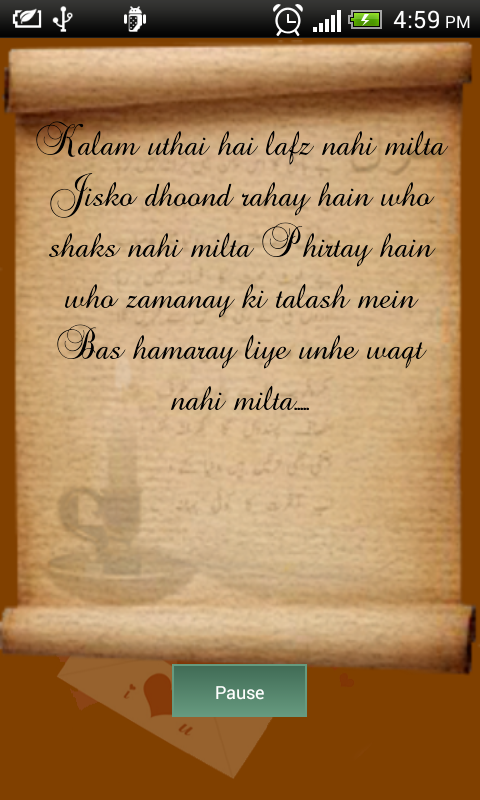 4:59 PM
Kalam uthai hai lafz nahi milta
Jisko dhoond rahay hain who
shaks nahi milta Phirtay hain
who zamanay ki talash mein
Bas hamaray liye unhe waqt
nahi milta.....
Pause
i
u